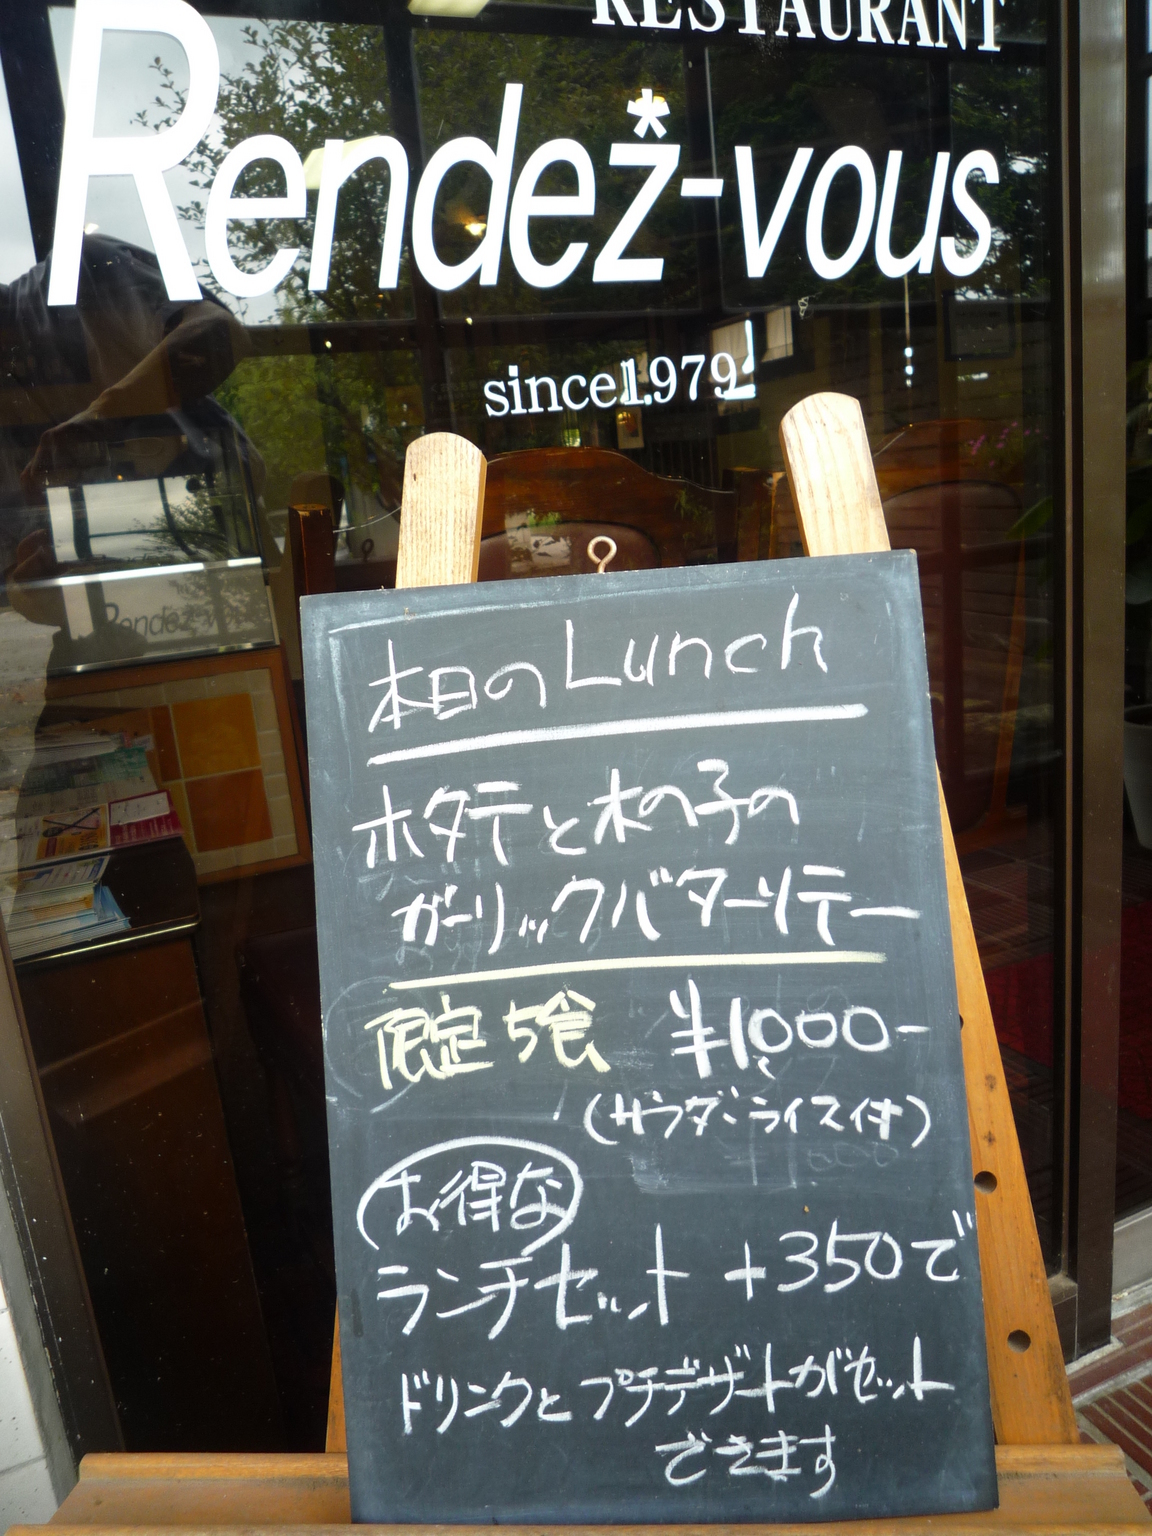 RESTAURANT
Rendez-vous
since1979
本日のLunch
ホタテと木の子の
ガーリックバターソテー
限定5食 ¥1000-
(サラダ・ライス付)
お得な
ランチセット +350で
ドリンクとプチデザートがセット
できます